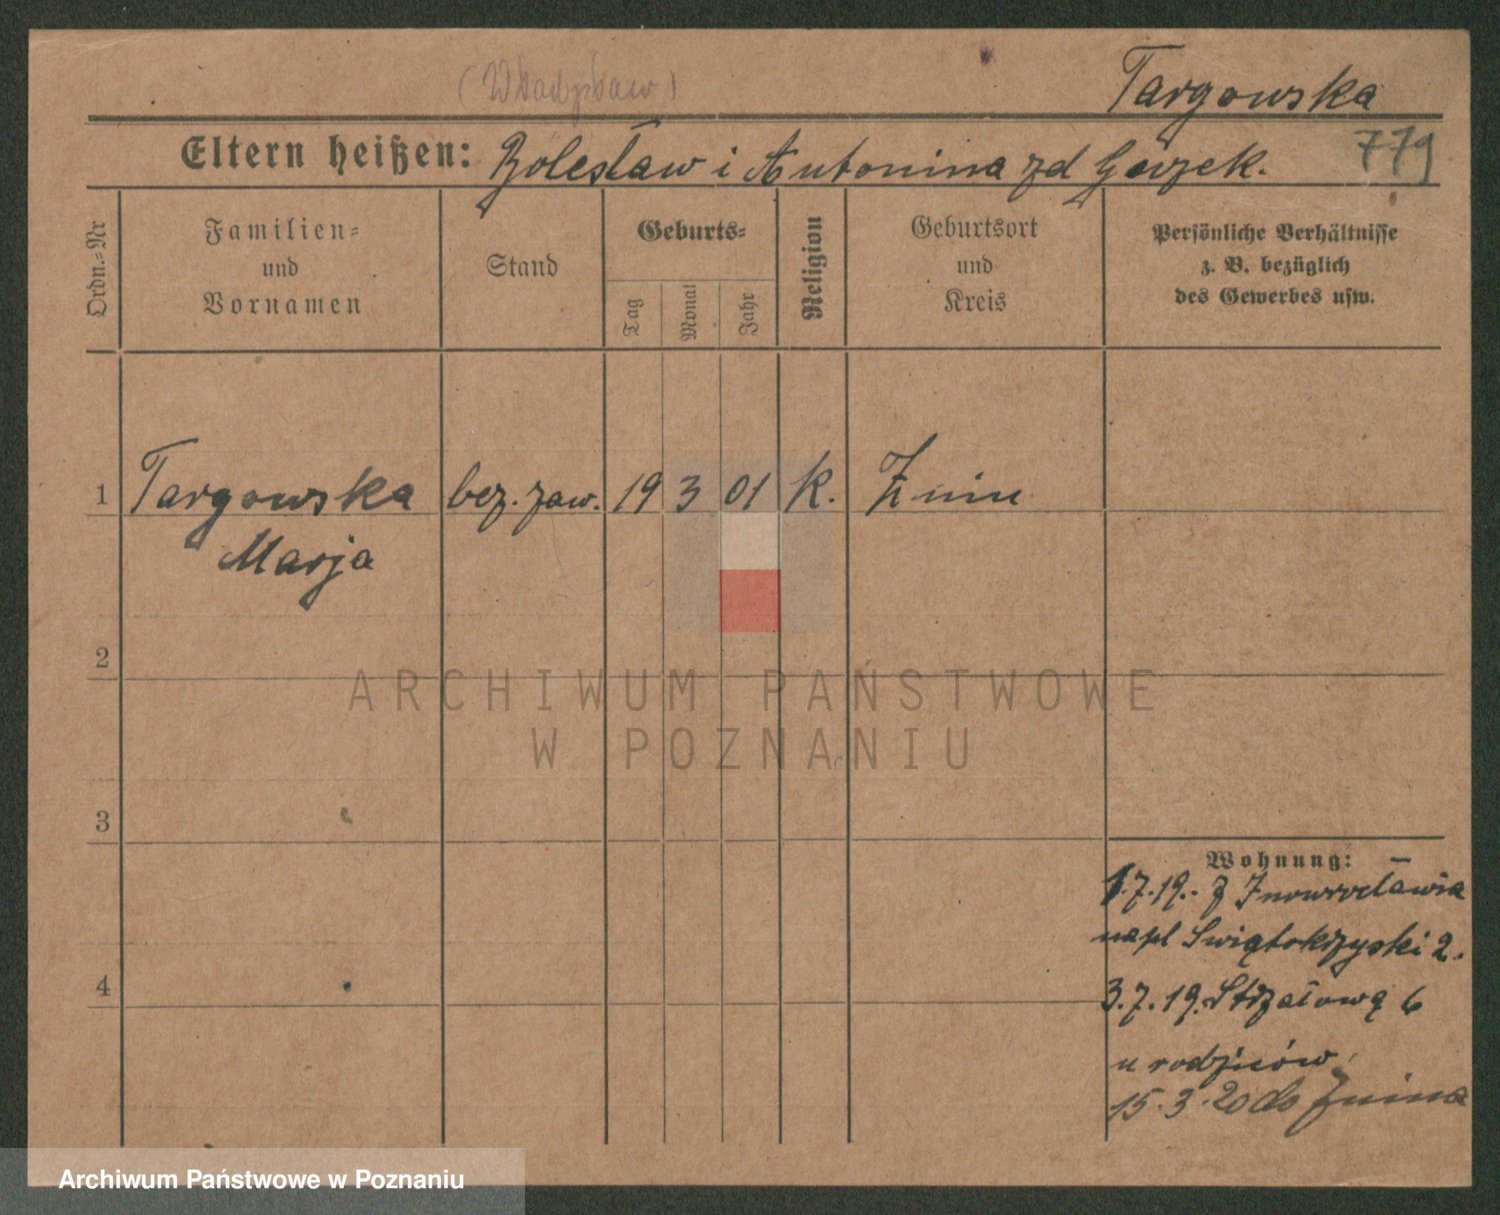 (Władysław)
Targowska
Eltern heißen: Bolesław i Antonina zd Górzek.
779
Ordn.=Nr
Familien=
und
Vornamen
Stand
Geburts=
Tag
Monat
Jahr
Religion
Geburtsort
und
Kreis
Persönliche Verhältnisse
z. B. bezüglich
des Gewerbes usw.
1 Targowska bez. zaw. 19 3 01 k. Żnin
Marja
2
3
4
ARCHIWUM PAŃSTWOWE
W POZNANIU
Wohnung:
1.7.19. z Inowrocławia
na pl Swiętokrzyski 2.
3.7.19. Strzałową 6
u rodziców
15.3.20 do Żnina
Archiwum Państwowe w Poznaniu